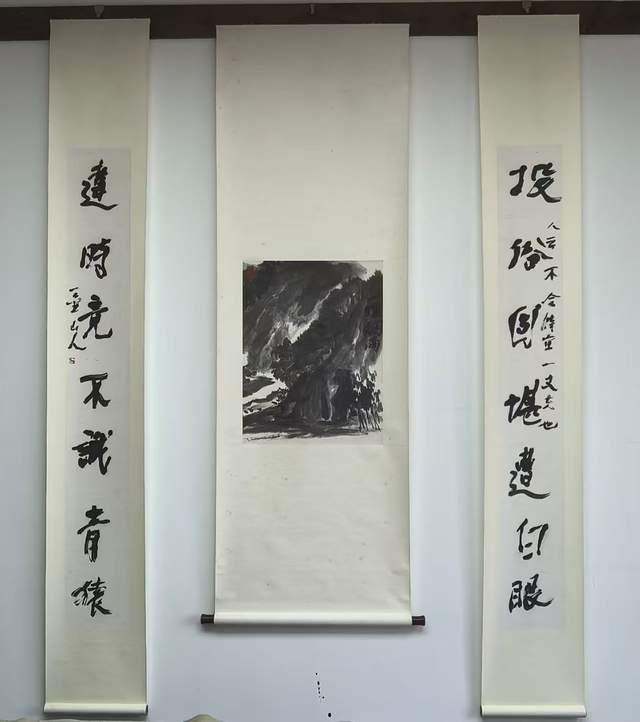 投俗堪遭白眼
人云不合時宜一丈夫也
違時竟不識青猿
山人